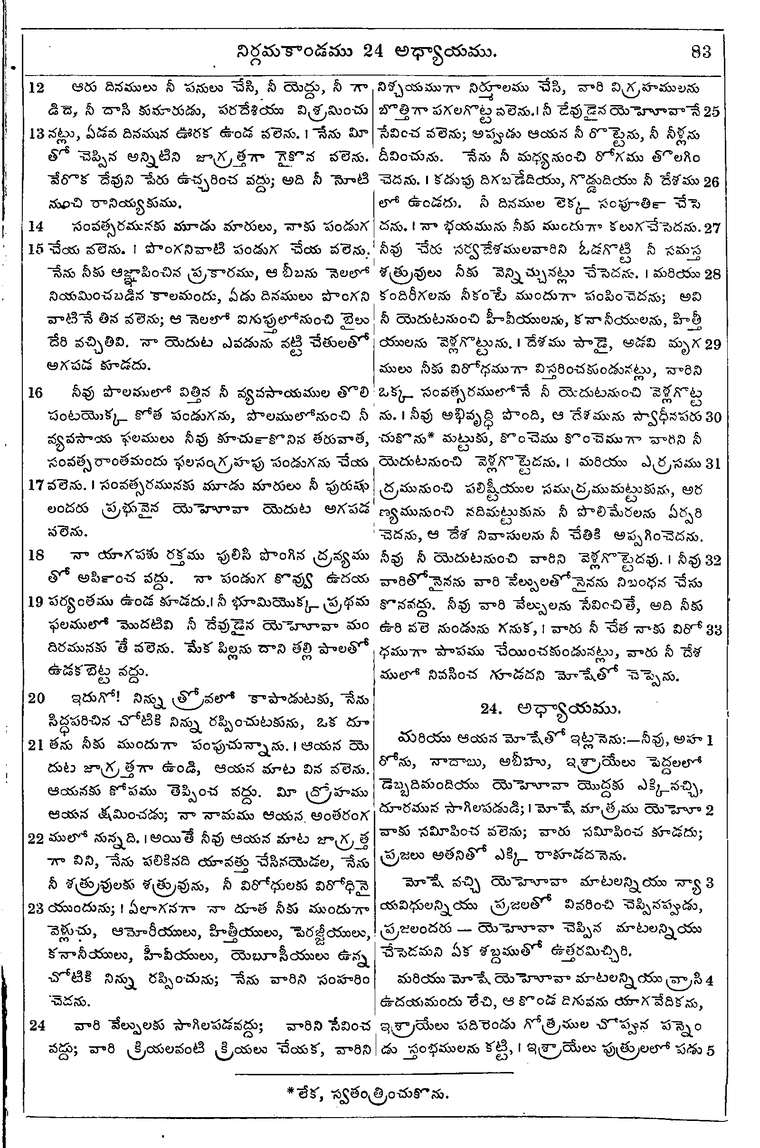 నిర్గమకాండము 24 అధ్యాయము.
83
12 ఆరు దినములు నీ పనులు చేసి, నీ యెద్దు, నీ గా
డిదె, నీ దాసి కుమారుడు, పరదేశియు విశ్రమించు
13 నట్లు, ఏడవ దినమున ఊరక ఉండ వలెను. । నేను మీ
తో చెప్పిన అన్నిటిని జాగ్రత్తగా గైకొన వలెను.
వేరొక దేవుని పేరు ఉచ్చరించ వద్దు; అది నీ నోటి
నుంచి రానియ్యకుము.
14 సంవత్సరమునకు మూడు మారులు, నాకు పండుగ
15 చేయ వలెను. । పొంగనివాటి పండుగ చేయ వలెను.
నేను నీకు ఆజ్ఞాపించిన ప్రకారము, ఆ బీబను నెలలో
నియమించబడిన కాలమందు, ఏడు దినములు పొంగని
వాటినే తిన వలెను; ఆ నెలలో ఐగుప్తులోనుంచి బైలు
దేరి వచ్చితివి. నా యెదుట ఎవడును వట్టి చేతులతో
అగపడ కూడదు.
16 నీవు పొలములో విత్తిన నీ వ్యవసాయముల తొలి
పంటయొక్క కోత పండుగను, పొలములోనుంచి నీ
వ్యవసాయ ఫలములు నీవు కూర్చుకొనిన తరువాత,
సంవత్సరాంతమందు ఫలసంగ్రహపు పండుగను చేయ
17 వలెను. । సంవత్సరమునకు మూడు మారులు నీ పురుషు
లందరు ప్రభువైన యెహోవా యెదుట అగపడ
వలెను.
18 నా యాగపశు రక్తము పులిసి పొంగిన ద్రవ్యము
తో అర్పించ వద్దు. నా పండుగ కొవ్వు ఉదయ
19 పర్యంతము ఉండ కూడదు. । నీ భూమియొక్క ప్రథమ
ఫలములో మొదటివి నీ దేవుడైన యెహోవా మం
దిరమునకు తే వలెను. మేక పిల్లను దాని తల్లి పాలతో
ఉడకబెట్ట వద్దు.
20 ఇదుగో! నిన్ను త్రోవలో కాపాడుటకు, నేను
సిద్ధపరిచిన చోటికి నిన్ను రప్పించుటకును, ఒక దూ
21 తను నీకు ముందుగా పంపుచున్నాను. । ఆయన యె
దుట జాగ్రత్తగా ఉండి, ఆయన మాట విన వలెను.
ఆయనకు కోపము తెప్పించ వద్దు. మీ ద్రోహము
ఆయన క్షమించడు; నా నామము ఆయన అంతరంగ
22 ములో నున్నది. । అయితే నీవు ఆయన మాట జాగ్రత్త
గా విని, నేను పలికినది యావత్తు చేసినయెడల, నేను
నీ శత్రువులకు శత్రువును, నీ విరోధులకు విరోధినై
23 యుందును; । ఏలాగనగా నా దూత నీకు ముందుగా
వెళ్లుచు, ఆమోరీయులు, హిత్తీయులు, పెరజ్జీయులు,
కనానీయులు, హీవీయులు, యెబూసీయులు ఉన్న
చోటికి నిన్ను రప్పించును; నేను వారిని సంహరిం
చెదను.
24 వారి వేల్పులకు సాగిలపడవద్దు; వారిని సేవించ
వద్దు; వారి క్రియలవంటి క్రియలు చేయక, వారిని
నిశ్చయముగా నిర్మూలము చేసి, వారి విగ్రహములను
బొత్తిగా పగలగొట్ట వలెను. । నీ దేవుడైన యెహోవానే 25
సేవించ వలెను; అప్పుడు ఆయన నీ రొట్టెను, నీ నీళ్లను
దీవించును. నేను నీ మధ్యనుంచి రోగము తొలగిం
చెదను. । కడుపు దిగబడేదియు, గొడ్డుదియు నీ దేశము 26
లో ఉండదు. నీ దినముల లెక్క సంపూర్తి చేసె
దను. । నా భయమును నీకు ముందుగా కలుగచేసెదను. 27
నీవు చేరు సర్వదేశములవారిని ఓడగొట్టి నీ సమస్త
శత్రువులు నీకు వెన్నిచ్చునట్లు చేసెదను. । మరియు 28
కందిరీగలను నీకంటే ముందుగా పంపించెదను; అవి
నీ యెదుటనుంచి హీవీయులను, కనానీయులను, హిత్తీ
యులను వెళ్లగొట్టును. । దేశము పాడై, అడవి మృగ 29
ములు నీకు విరోధముగా విస్తరించకుండునట్లు, వారిని
ఒక్క సంవత్సరములోనే నీ యెదుటనుంచి వెళ్లగొట్ట
ను. । నీవు అభివృద్ధి పొంది, ఆ దేశమును స్వాధీనపరు 30
చుకొను* మట్టుకు, కొంచెము కొంచెముగా వారిని నీ
యెదుటనుంచి వెళ్లగొట్టెదను. । మరియు ఎర్రసము 31
ద్రమునుంచి పలిష్టీయుల సముద్రముమట్టుకును, అర
ణ్యమునుంచి నదిమట్టుకును నీ పొలిమేరలను ఏర్పరి
చెదను, ఆ దేశ నివాసులను నీ చేతికి అప్పగించెదను.
నీవు నీ యెదుటనుంచి వారిని వెళ్లగొట్టెదవు. । నీవు 32
వారితోనైనను వారి వేల్పులతోనైనను నిబంధన చేసు
కొనవద్దు. నీవు వారి వేల్పులను సేవించితే, అది నీకు
ఉరి వలె నుండును గనుక, । వారు నీ చేత నాకు విరో 33
ధముగా పాపము చేయించకుండునట్లు, వారు నీ దేశ
ములో నివసించ గూడదని మోషేతో చెప్పెను.
24. అధ్యాయము.
మరియు ఆయన మోషేతో ఇట్లనెను:—నీవు, అహ 1
రోను, నాదాబు, అబీహు, ఇశ్రాయేలు పెద్దలలో
డెబ్బదిమందియు యెహోవా యొద్దకు ఎక్కివచ్చి,
దూరమున సాగిలపడుడి; । మోషే మాత్రము యెహో 2
వాకు సమీపించ వలెను; వారు సమీపించ కూడదు;
ప్రజలు అతనితో ఎక్కి రాకూడదనెను.
మోషే వచ్చి యెహోవా మాటలన్నియు న్యా 3
యవిధులన్నియు ప్రజలతో వివరించి చెప్పినప్పుడు,
ప్రజలందరు — యెహోవా చెప్పిన మాటలన్నియు
చేసెదమని ఏక శబ్దముతో ఉత్తరమిచ్చిరి.
మరియు మోషే యెహోవా మాటలన్నియు వ్రాసి 4
ఉదయమందు లేచి, ఆ కొండ దిగువను యాగవేదికను,
ఇశ్రాయేలు పదిరెండు గోత్రముల చొప్పున పన్నెం
డు స్తంభములను కట్టి, । ఇశ్రాయేలు పుత్రులలో పడు 5
*లేక, స్వతంత్రించుకొను.